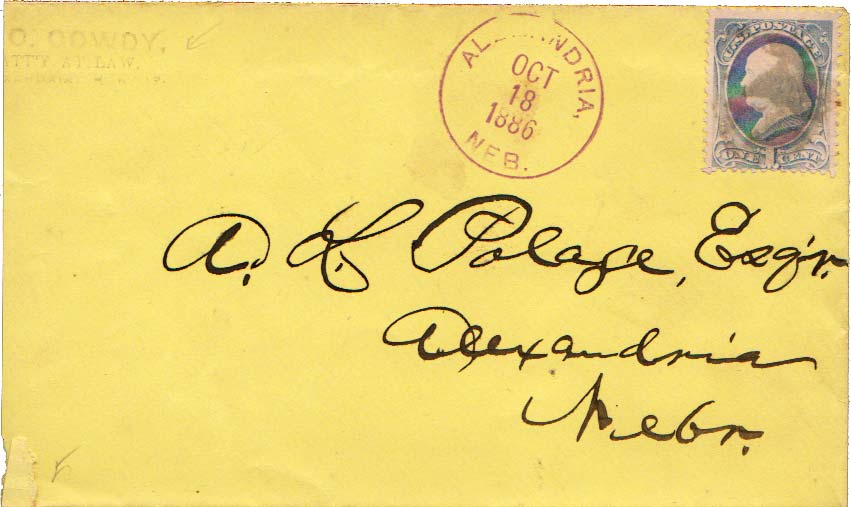 O. COWDY,
ATT'Y AT LAW,
ALEXANDRIA,
OCT
18
1886
NEB.
U.S. POSTAGE
ONE 1 CENT
A. K. Polage, Esq'r.
Alexandria
Nebr.